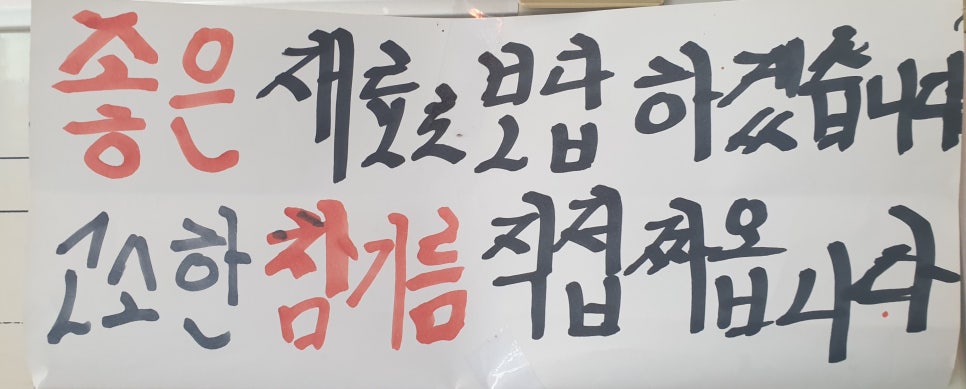 좋은 재료로 보답 하겠습니다
고소한 참기름 직접 짜옵니다